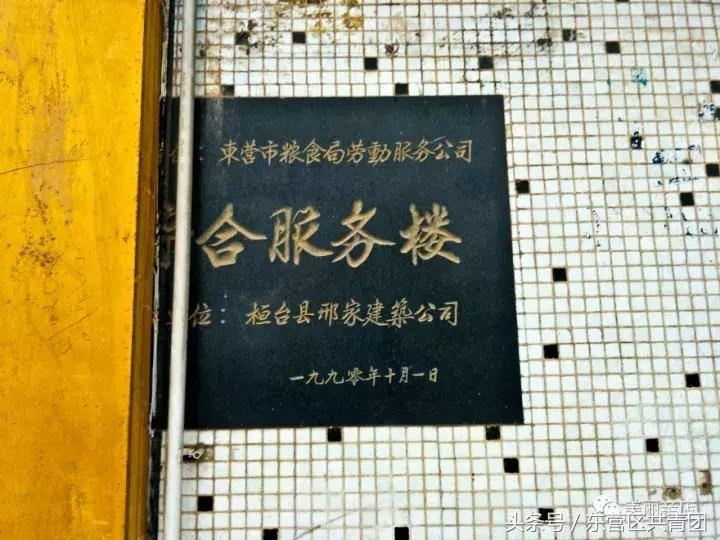 位：東营市粮食局劳動服务公司
合服务楼
位：桓台县邢家建築公司
一九九零年十月一日
头条号／东营区共青团